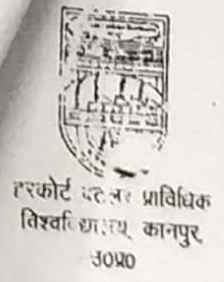 हरकोर्ट बटलर प्राविधिक
विश्वविद्यालय, कानपुर
उ०प्र०